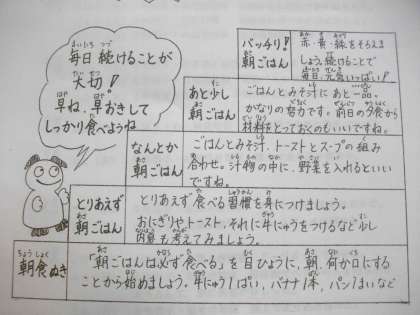 毎日 続けることが
大切!
早ね、早おきして
しっかり食べようね
バッチリ!
朝ごはん
赤・黄・緑をそろえま
しょう。続けることで
毎日、元気いっぱい!
あと少し
朝ごはん
ごはんとみそ汁に あと一品。
かなりの努力です。前日の夕食から
材料をとっておくのもいいですね。
なんとか
朝ごはん
ごはんとみそ汁、トーストとスープの組み
合わせ。汁物の中に、野菜を入れるといい
ですね。
とりあえず
朝ごはん
とりあえず 食べる 習慣を身につけましょう。
おにぎりやトースト、それに牛にゅうをつけるなど少し
内容も考えてみましょう。
朝食ぬき
「朝ごはんは必ず食べる」を目ひょうに、朝、何か口にする
ことから始めましょう。牛にゅう1ぱい、バナナ1本、パン1まいなど